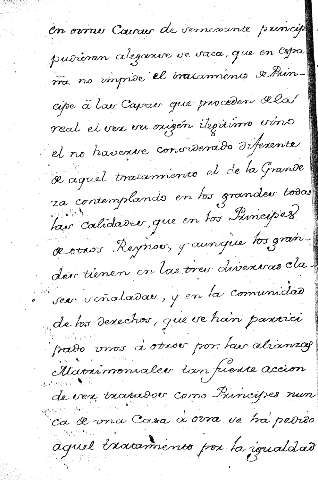 en otras Casas de semexante principio
pudieran alegarse se saca, que en Espa
ña no impide el tratamiento de Prin-
cipe à las Casas que proceden de la
real el ser su origen ilegitimo sino
el no haverse considerado diferente
de aquel tratamiento el de la Grande
za contemplando en los grandes todas
las calidades, que en los Principes
de otros Reynos, y aunque los gran-
des tienen en las tres diversas cla-
ses señaladas, y en la comunidad
de los derechos, que se han partici
pado unos à otros por las alianzas
Matrimoniales tan fuerte accion
de ser tratados como Principes nun
ca de una Casa à otra se há pedido
aquel tratamiento por la igualdad